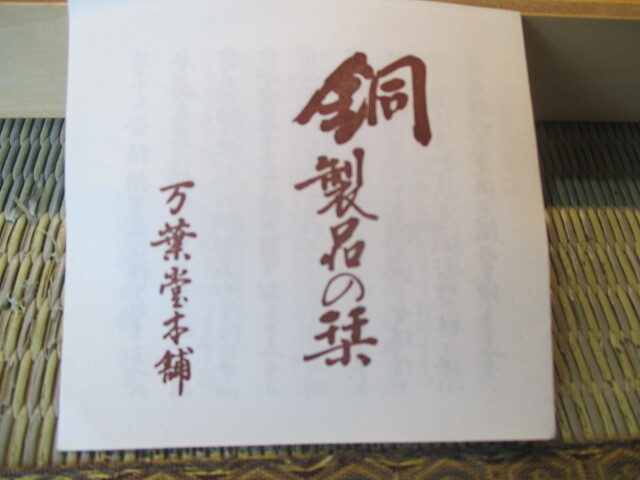 銅製品の栞
万葉堂本舗